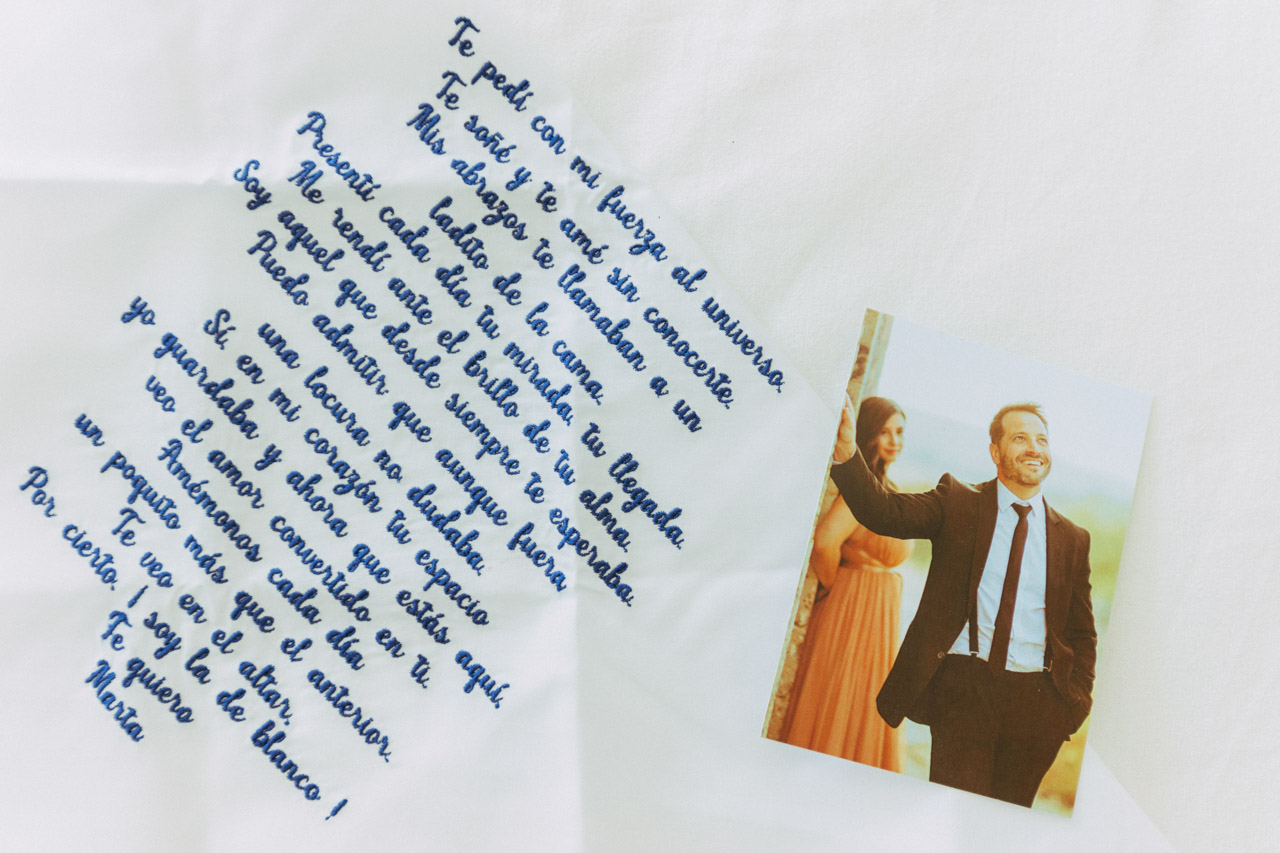 Te pedí con mi fuerza al universo.
Te soñé y te amé sin conocerte.
Mis abrazos te llamaban a un
ladito de la cama.
Presentí cada día tu mirada, tu llegada.
Me rendí ante el brillo de tu alma.
Soy aquel que desde siempre te esperaba.
Puedo admitir que aunque fuera
una locura no dudaba.
Sí, en mi corazón tu espacio
yo guardaba y ahora que estás aquí,
veo el amor convertido en ti.
Amémonos cada día
un poquito más que el anterior.
Te veo en el altar.
Por cierto, ¡ soy la de blanco !
Te quiero
Marta